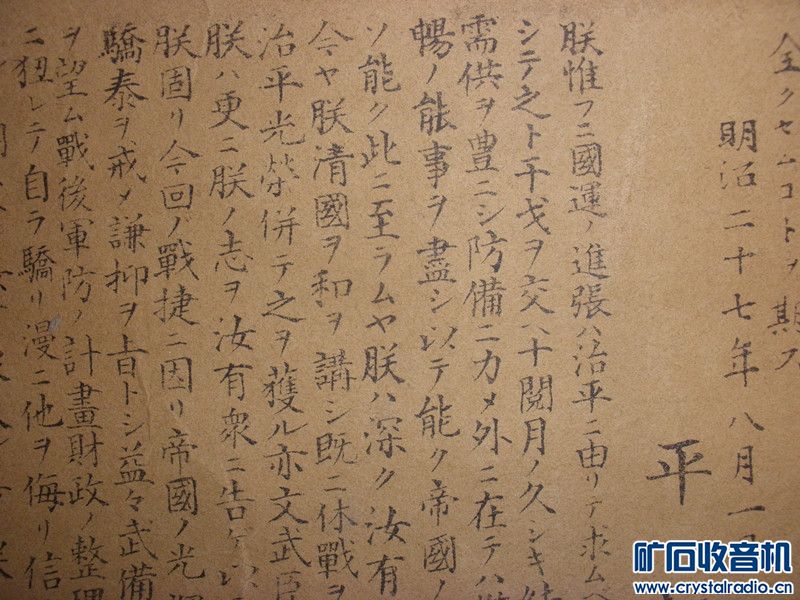 全クセムコトヲ期ス
明治二十七年八月一
平
朕惟フニ國運ノ進張ハ治平ニ由リテ求ムベ
シテ之ト干戈ヲ交ヘ十閲月ノ久シキ
需供ヲ豊ニシ防備ニ力メ外ニ在テハ
暢ノ能事ヲ盡シ以テ能ク帝國ノ
ソ能ク此ニ至ラムヤ朕ハ深ク汝有
今ヤ朕清國ヲ和ヲ講シ既ニ休戰ヲ
治平光榮併テ之ヲ獲ル亦文武臣
朕ハ更ニ朕ノ志ヲ汝有衆ニ告ケ以
朕固リ今回ノ戰捷ニ因リ帝國ノ光
驕泰ヲ戒メ謙抑ヲ旨トシ益々武備
ヲ望ム戰後軍防ノ計畫財政ノ整理
ニ狃レテ自ラ驕リ漫ニ他ヲ侮リ信
矿石收音机
www.crystalradio.cn